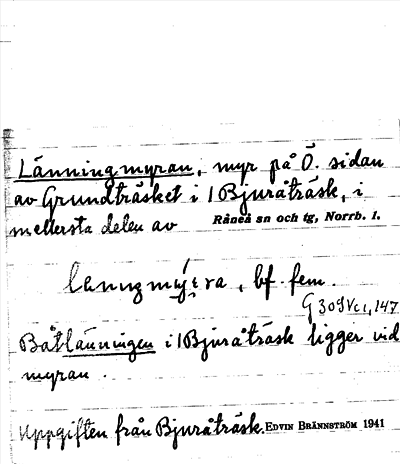 Länningmyran, myr på Ö. sidan
av Grundträsket i 1 Bjuråträsk, i
mellersta delen av Råneå sn och tg, Norrb. l.
bf fem.
G 309 Vc1, 147
Båtlänningen i 1 Bjuråträsk ligger vid
myran.
Uppgiften från Bjuråträsk. EDVIN BRÄNNSTRÖM 1941